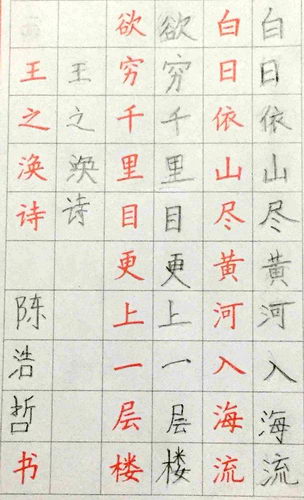 白日依山尽黄河入海流
白日依山尽黄河入海流
欲穷千里目更上一层楼
欲穷千里目更上一层楼
王之涣诗
王之涣诗
陈浩哲书